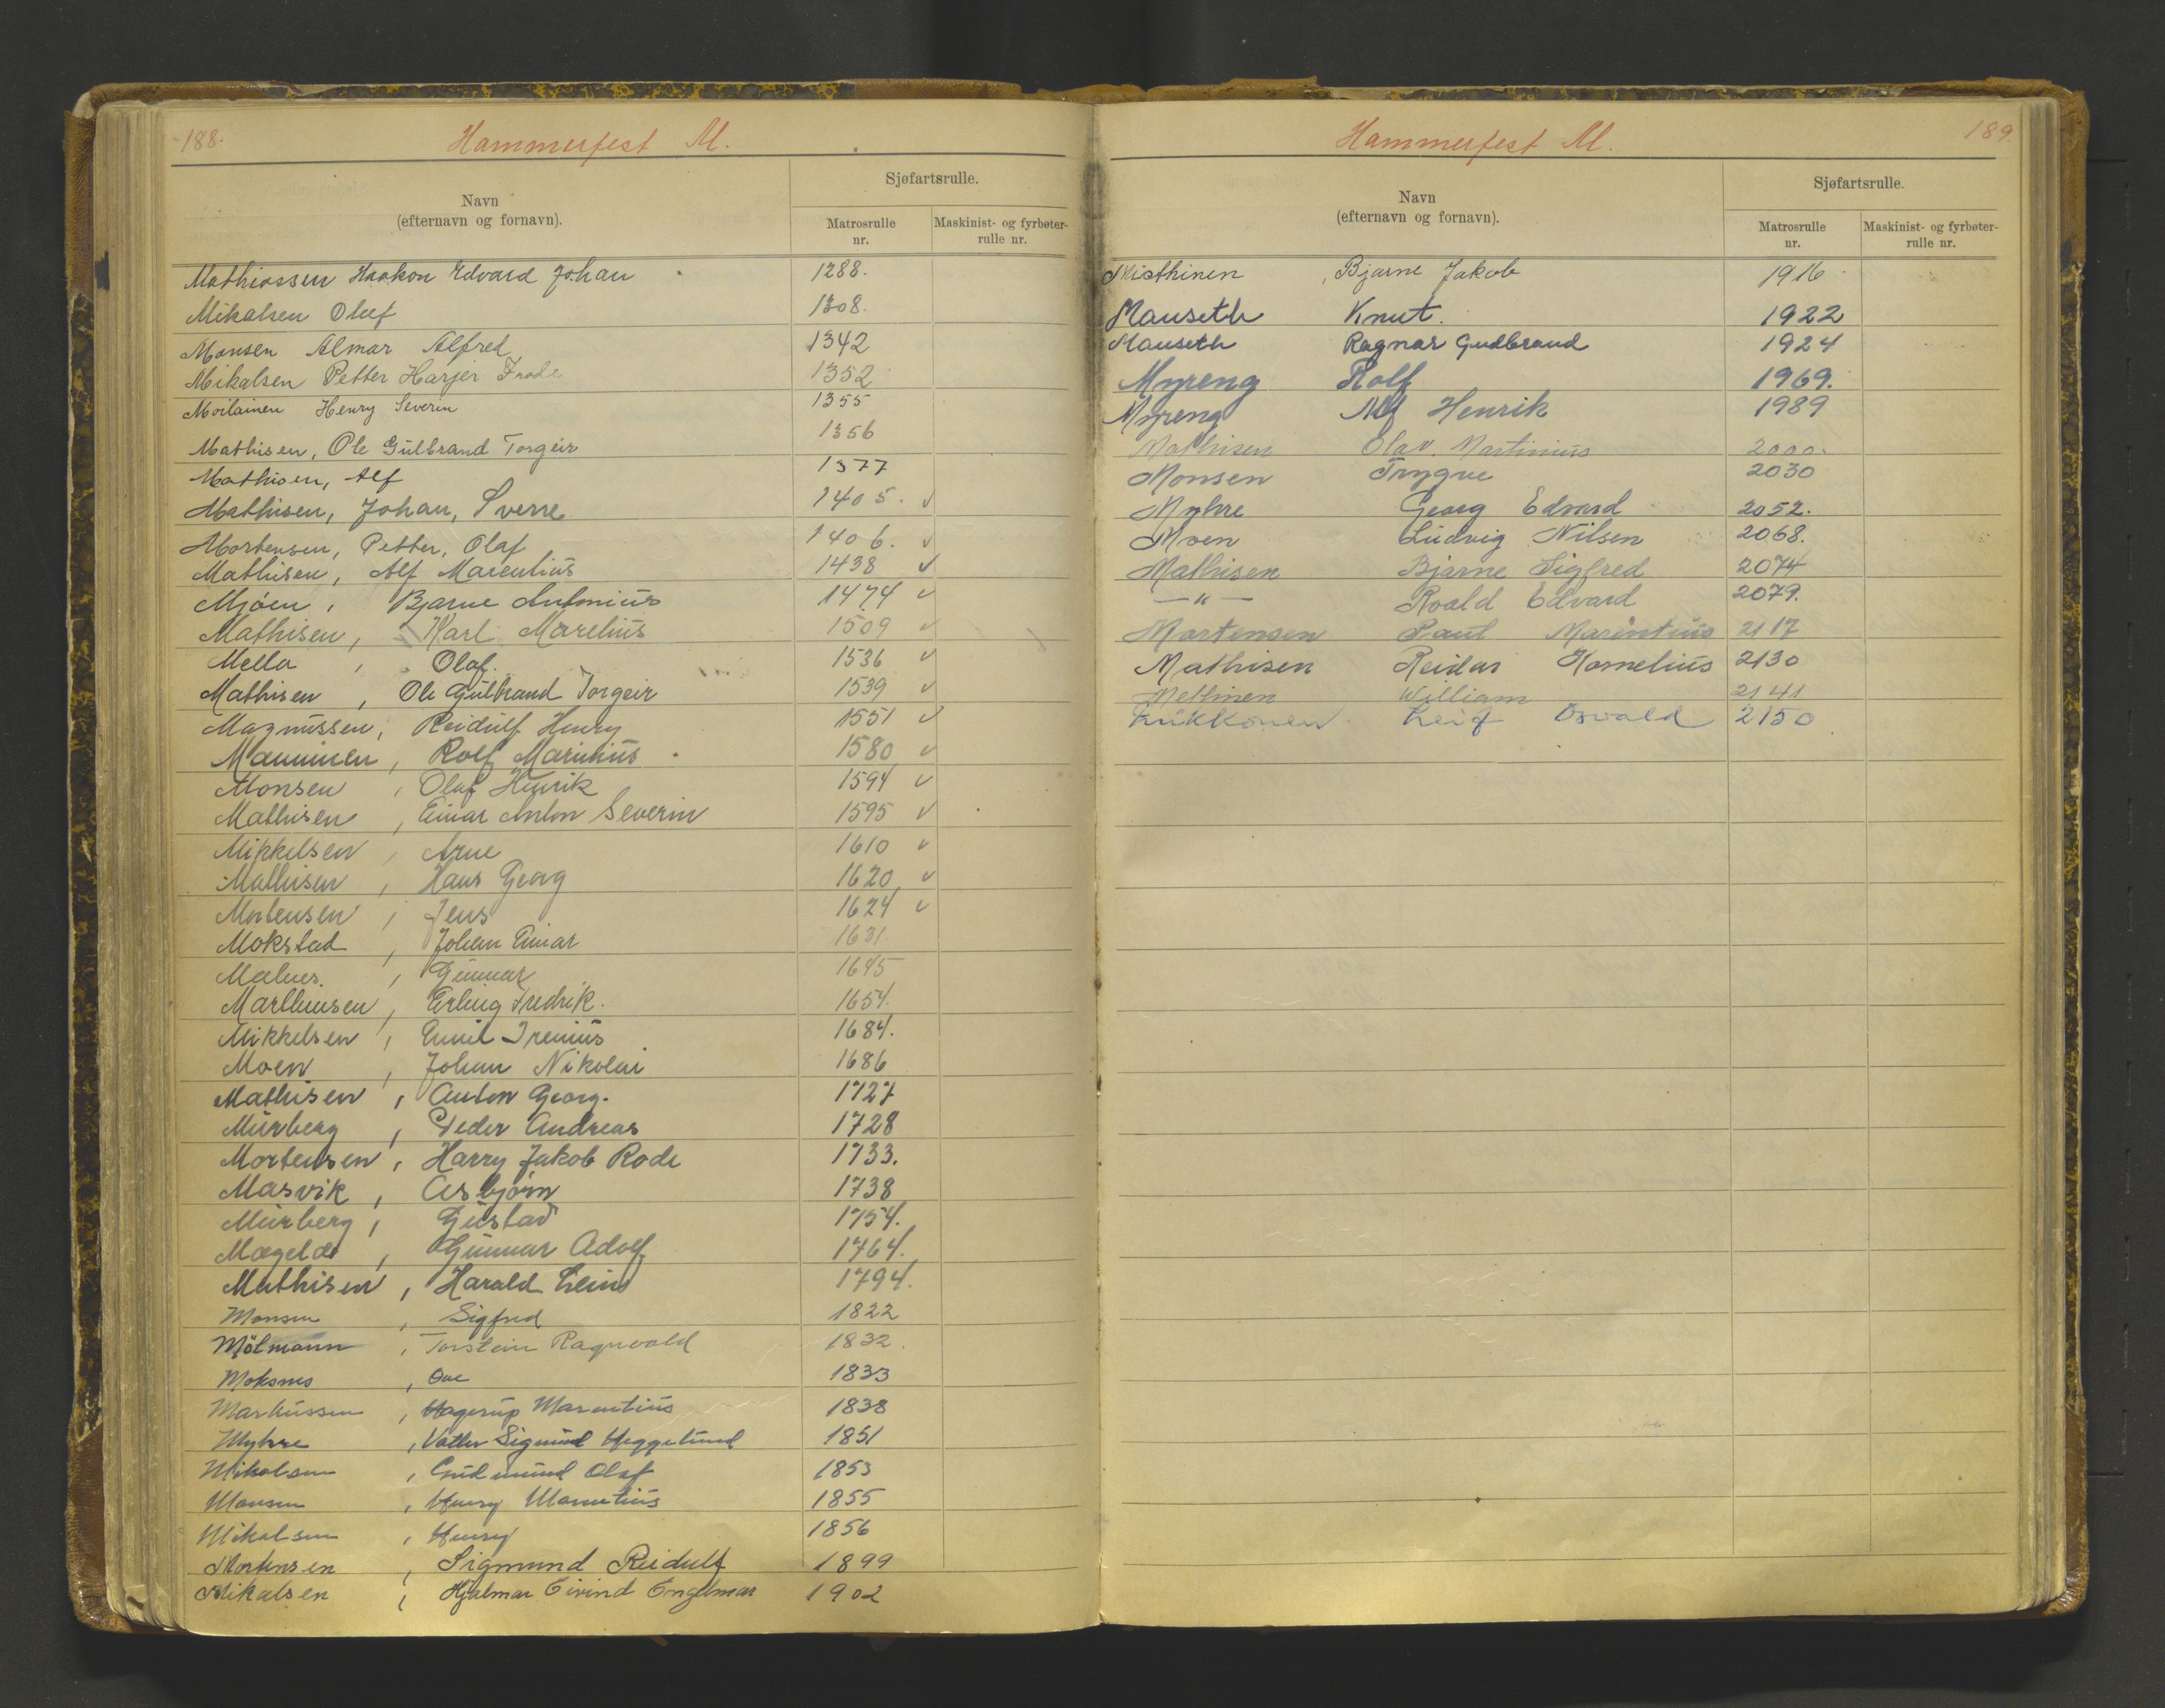 188.
Hammerfest M.
Navn
(efternavn og fornavn).
Sjøfartsrulle.
Matrosrulle nr.
Maskinist- og fyrbøter-rulle nr.
Mathiassen Haakon Edvard Johan 1288.
Mikalsen Oluf 1308.
Monsen Almar Alfred 1342
Mikalsen Petter Harjer Frode 1352
Moilainen Henry Severin 1355
Mathisen, Ole Gulbrand Torgeir 1356
Mathisen, Alf 1377
Mathisen, Johan, Sverre 1405. ✓
Mortensen, Petter, Olaf 1406. ✓
Mathisen, Alf Marentius 1438 ✓
Mjöen, Bjarne Antonius 1474 ✓
Mathisen, Karl Marelius 1509 ✓
Mella, Olaf. 1536 ✓
Mathisen, Ole Gulbrand Torgeir 1539 ✓
Magnussen, Reidulf Henry 1551 ✓
Manninen, Rolf Marinius 1580 ✓
Monsen, Olaf Henrik 1594 ✓
Mathisen, Einar Anton Severin 1595 ✓
Mikkelsen, Arne 1610 ✓
Mathisen, Hans Georg 1620 ✓
Mortensen, Jens 1624 ✓
Mokstad, Johan Einar 1631.
Malnes., Gunnar 1645
Marthinsen, Erling Fredrik. 1654.
Mikkelsen, Emil Irenius 1684.
Moen, Johan Nikolai 1686
Mathisen, Anton Georg. 1727
Murberg, Peder Andreas 1728
Mortensen, Harry Jakob Rode 1733.
Masvik, Asbjörn 1738
Murberg, Gustav 1754.
Mægelde, Gunnar Adolf 1764.
Mathisen, Harald Leino 1794.
Monsen, Sigfred 1822
Mölmann, Torstein Ragnvald 1832.
Moksnes, Ove 1833
Markussen, Hagerup Marentius 1838
Myhre, Valter Sigmund Heggelund 1851
Mikalsen, Gudmund Olaf 1853
Monsen, Henry Marentius 1855
Mikalsen, Henry 1856
Mortensen, Sigmund Reidulf 1899
Mikalsen, Hjalmar Eivind Engelmar 1902
189.
Hammerfest M.
Navn
(efternavn og fornavn).
Sjøfartsrulle.
Matrosrulle nr.
Maskinist- og fyrbøter-rulle nr.
Misthinen, Bjarne Jakob 1916
Mauseth Knut. 1922
Mauseth Ragnar Gudbrand 1924
Myreng Rolf 1969.
Myreng Alf Henrik 1989
Mathisen Olav. Martinius 2000.
Monsen Trygve 2030
Myhre Georg Edvard 2052.
Moen Ludvig Nilsen 2068.
Mathisen Bjarne Sigfred 2074
— " — Roald Edvard 2079.
Mortensen Paul Marentius 2117
Mathisen Reidar Kornelius 2130
Mettinen William 2141
Lukkonen Leif Osvald 2150